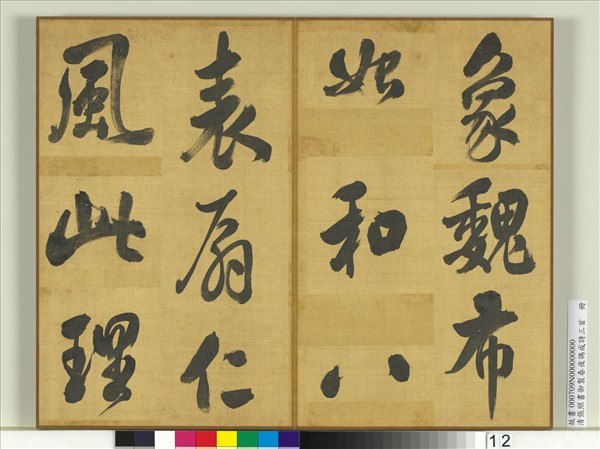 象魏布
始和八
表扇仁
風此理
故書000709N000000000
清張照書御製春夜偶成詩三首　冊
12